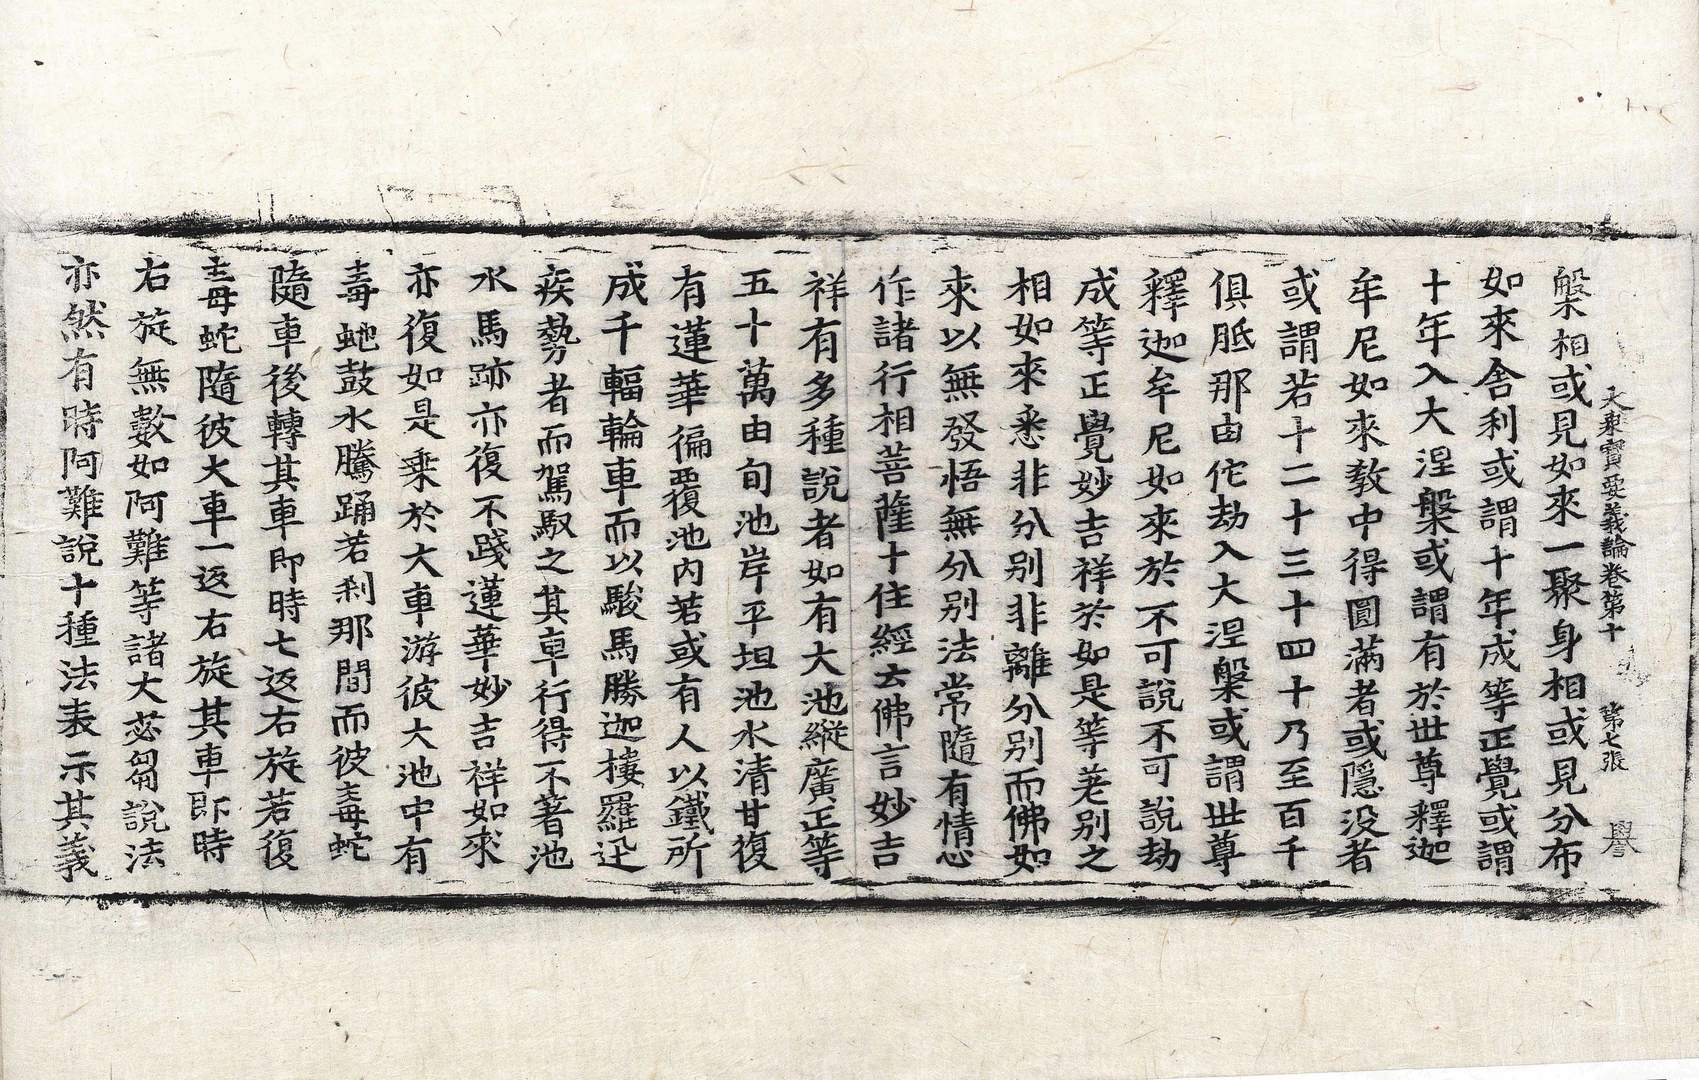 大乘寶要義論卷第十　第七張　譽
槃相或見如來一聚身相或見分布
如來舍利或謂十年成等正覺或謂
十年入大涅槃或謂有於世尊釋迦
牟尼如來教中得圓滿者或隱没者
或謂若十二十三十四十乃至百千
俱胝那由佗劫入大涅槃或謂世尊
釋迦牟尼如來於不可說不可說劫
成等正覺妙吉祥於如是等差别之
相如來悉非分别非離分别而佛如
來以無發悟無分别法常隨有情心
作諸行相菩薩十住經云佛言妙吉
祥有多種說者如有大池縱廣正等
五十萬由旬池岸平坦池水清甘復
有蓮華徧覆池内若或有人以鐵所
成千輻輪車而以駿馬勝迦樓羅迅
疾勢者而駕馭之其車行得不著池
水馬跡亦復不踐蓮華妙吉祥如來
亦復如是乘於大車游彼大池中有
毒虵鼓水騰踊若刹那間而彼毒蛇
隨車後轉其車即時七返右旋若復
毒蛇隨彼大車一返右旋其車即時
右旋無數如阿難等諸大苾芻說法
亦然有時阿難說十種法表示其義